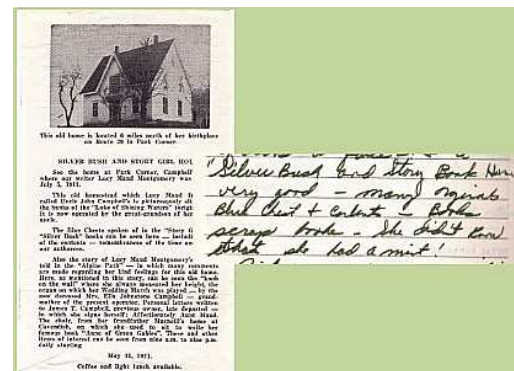 This old home is located 6 miles north of her birthplace
on Route 20 in Park Corner.
SILVER BUSH AND STORY GIRL
See the home at Park Corner, Campbell
where our writer Lucy Maud Montgomery was
July 5, 1911.
This old homestead which Lucy Maud
called Uncle John Campbell's is picturesquely
the banks of the "Lake of Shining Waters"
It is now operated by the great-grandson of her
uncle.
The Blue Chest spoken of in the "Story
"Silver Bush" books can be seen here
of the contents — remembrances of the time
our authoress.
Also the story of Lucy Maud Montgomery's
told in the "Alpine Path" — in which many comments
are made regarding her kind feelings for this old home.
Here, as mentioned in this story, can be seen the
on the wall" where she always measured her height, the
organ on which her Wedding March was played — by the
now deceased Mrs. Ella Johnstone Campbell — grand-
mother of the present operator. Personal letters written
to James T. Campbell, previous owner, late departed —
in which she signs herself: Affectionately Aunt Maud.
The chair, from her grandfather Macneill's home at
Cavendish, on which she used to sit to write her
famous book "Anne of Green Gables". These and other
items of interest can be seen from nine a.m. to nine p.m.
daily starting
May 1971.
Coffee and light lunch available.
Silver Bush and Story Book
very good - many
Blue Chest + contents - Books
scrap books - She didn't know
what she had a mint!